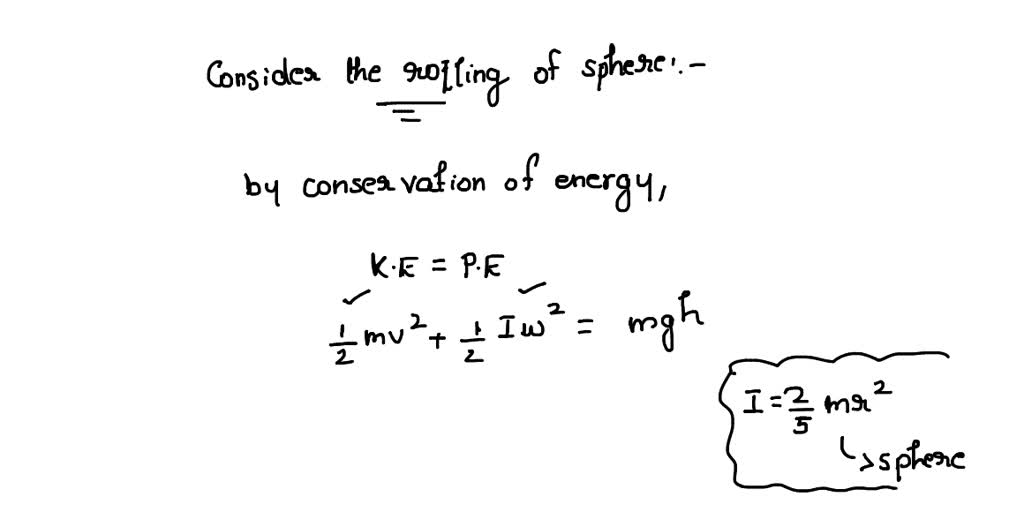 Consider the rolling of sphere:-
by conservation of energy,
K.E = P.E
1/2 mv² + 1/2 Iω² = mgh
I = 2/5 mr²
↳ sphere